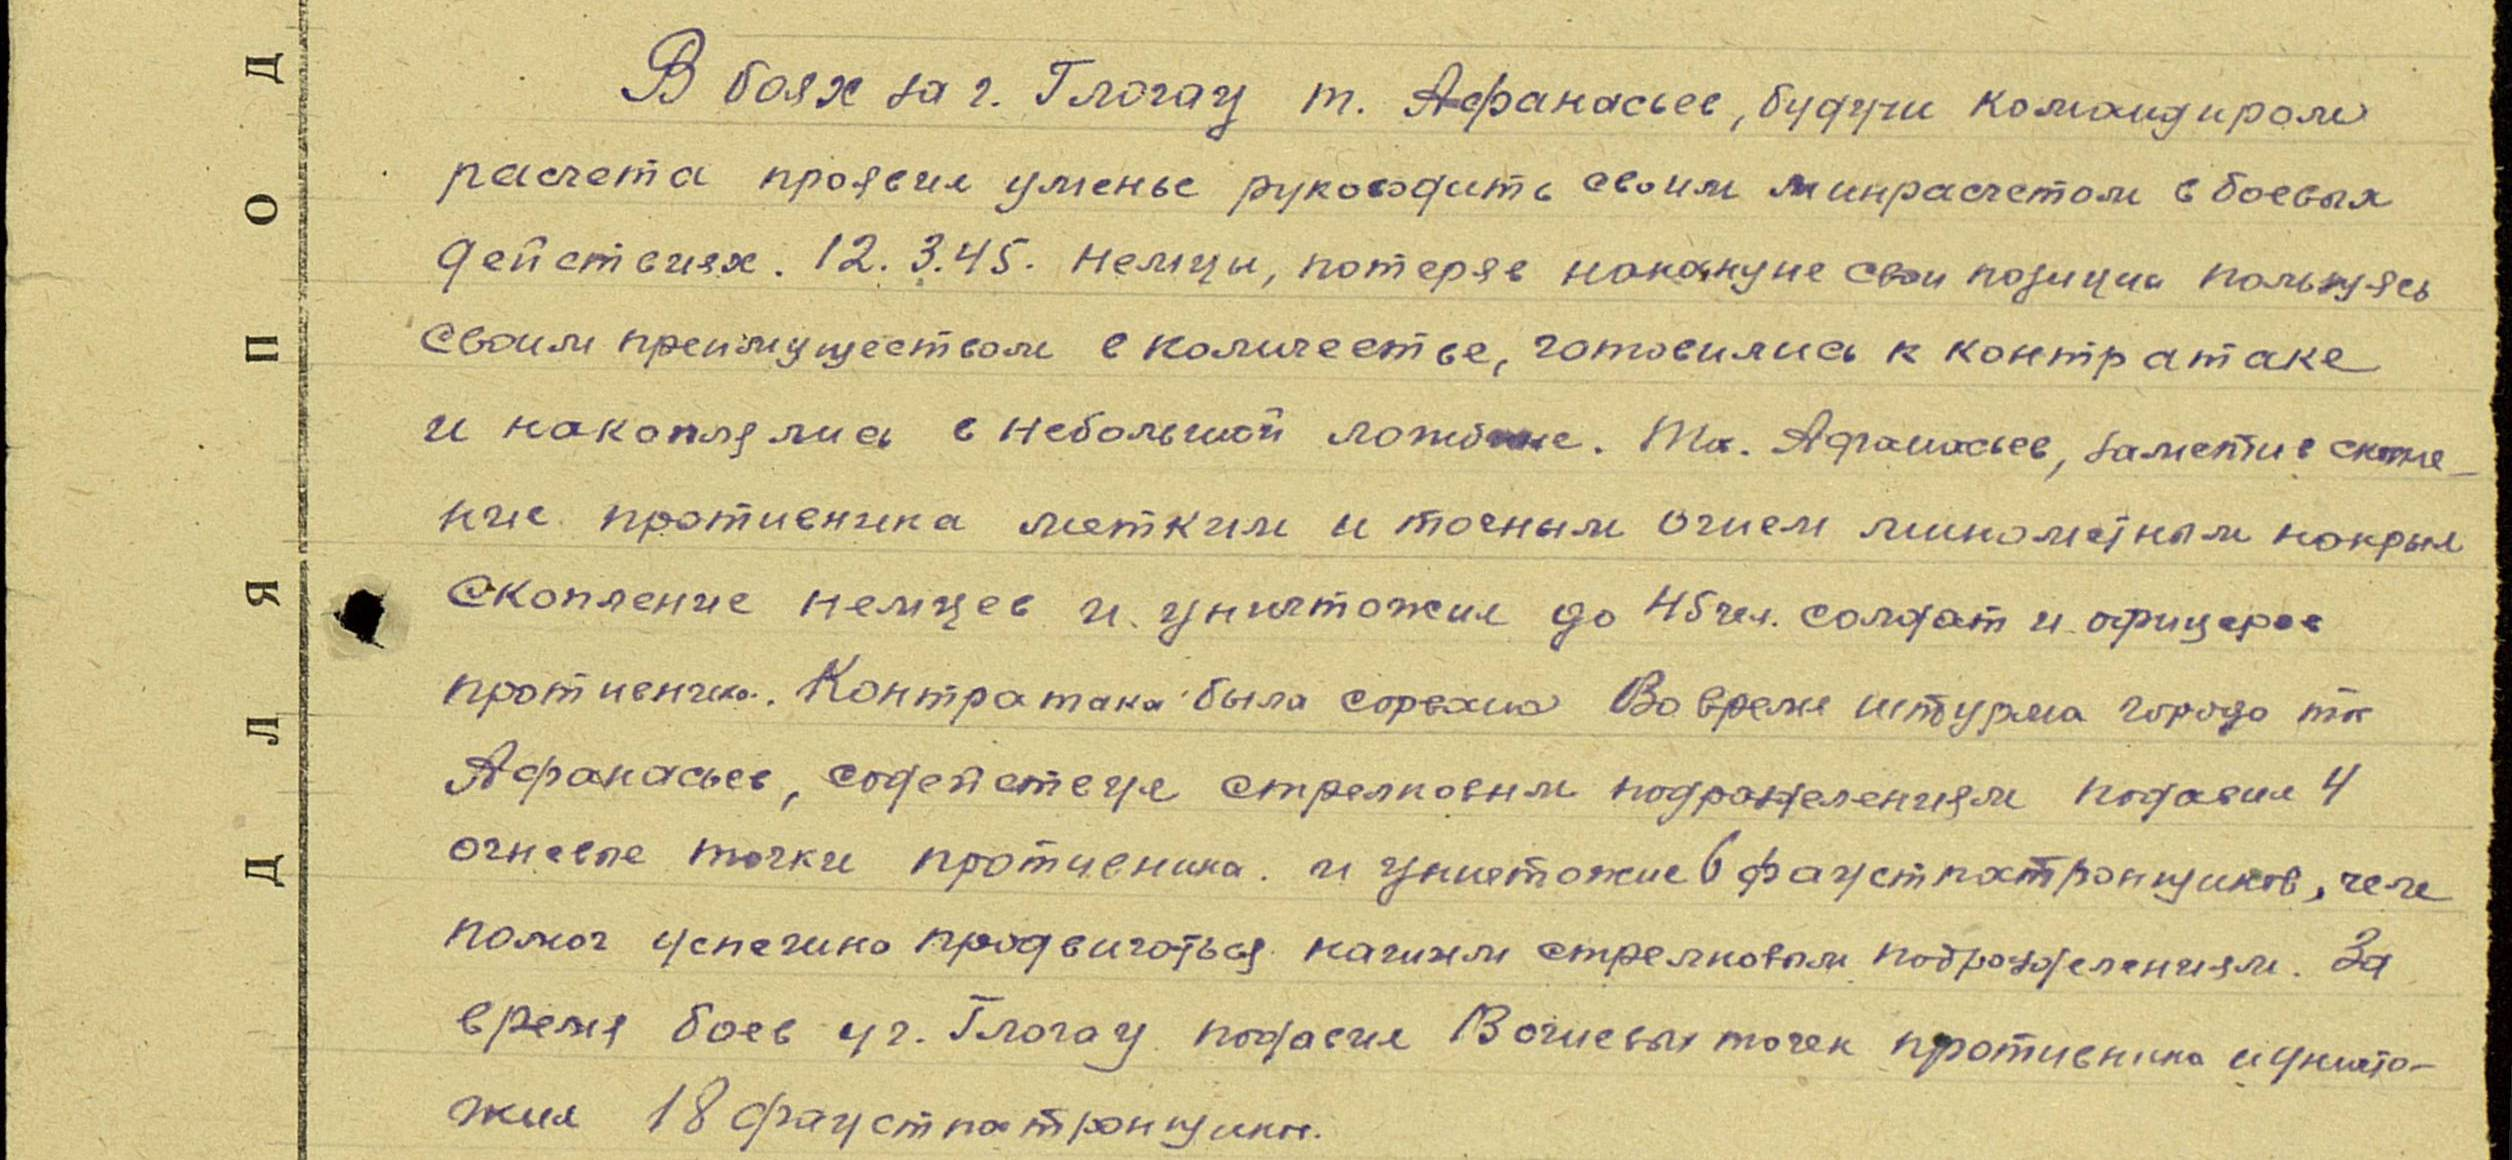 ДЛЯ ПОД
В боях за г. Глогау т. Афанасьев, будучи командиром
расчета проявил уменье руководить своим минрасчетом в боевых
действиях. 12.3.45. немцы, потеряв накануне свои позиции пользуясь
своим преимуществом в количестве, готовились к контратаке
и накоплялись в небольшой ложбине. Тк. Афанасьев, заметив скопле-
ние противника метким и точным огнем минометным накрыл
скопление немцев и уничтожил до 45 чел. солдат и офицеров
противника. Контратака была сорвана Во время штурма города тк
Афанасьев, содействуя стрелковым подразделениям подавил 4
огневые точки противника. и уничтожил 6 фаустпатронщиков, чем
помог успешно продвигаться нашим стрелковым подразделениям. За
время боев у г. Глогау подавил огневых точек противника и уничто-
жил 18 фаустпатронщиков.